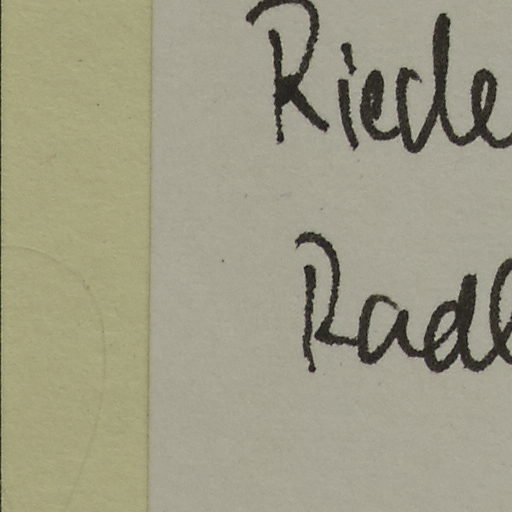 Riede
Radl